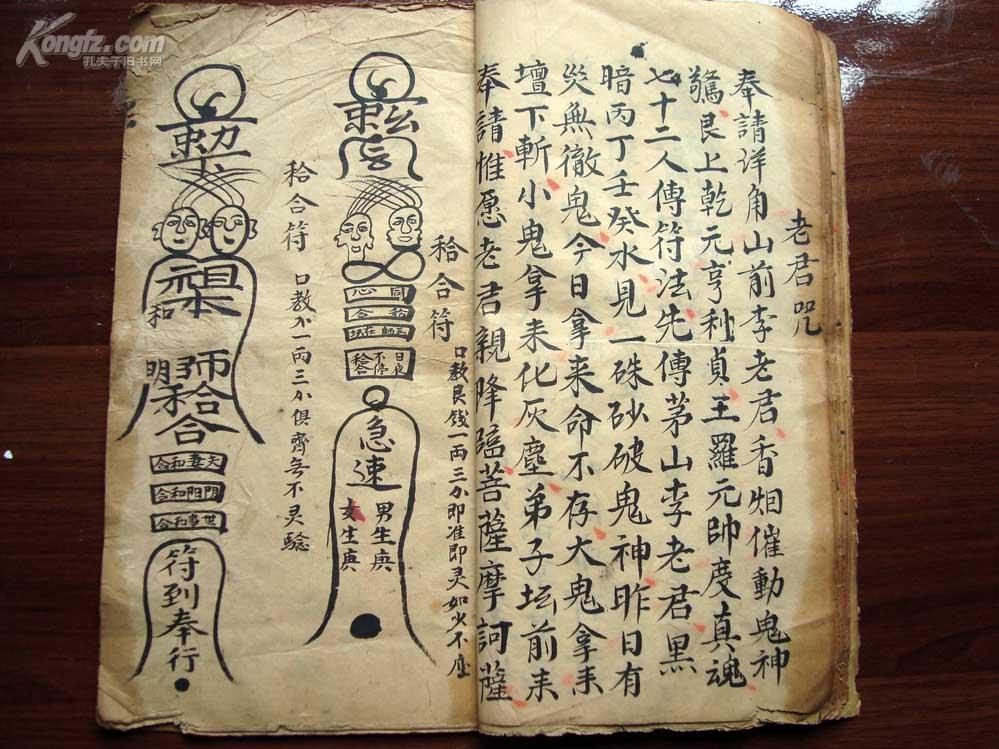 老君咒
奉請洋角山前李老君香烟催動鬼神
驚艮上乾元亨利貞王羅元帥度真魂
七十二人傳符法先傳茅山李老君黑
暗丙丁壬癸水見一硃砂破鬼神昨日有
災無徹鬼今日拿来命不存大鬼拿来
壇下斬小鬼拿来化灰塵弟子坛前来
奉請惟愿老君親降臨菩薩摩訶薩
秴合符
口教艮钱一两三分即准即灵如少不应
同心
秴合
日夜不停秴合
急速
男生庚
女生庚
秴合符
口教分一两三分俱齊無不灵驗
和
明
師
秴合
夫妻和合
阴阳和合
世事和合
符到奉行
Kongfz.com
孔夫子旧书网